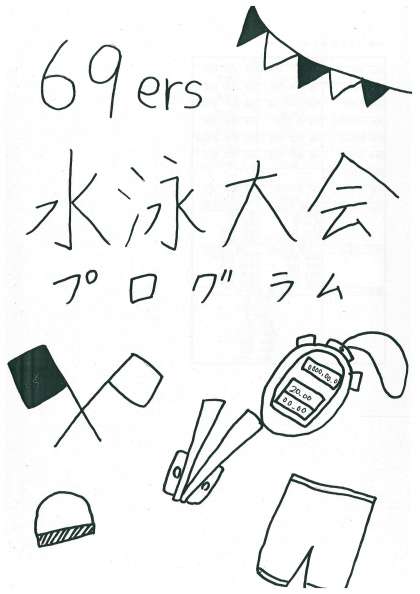 69ers
水泳大会
プログラム
0000,00.0
20.00
00_00